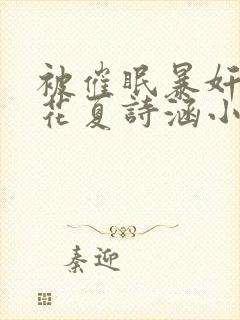 被催眠暴奸
花夏詩涵小
秦迎